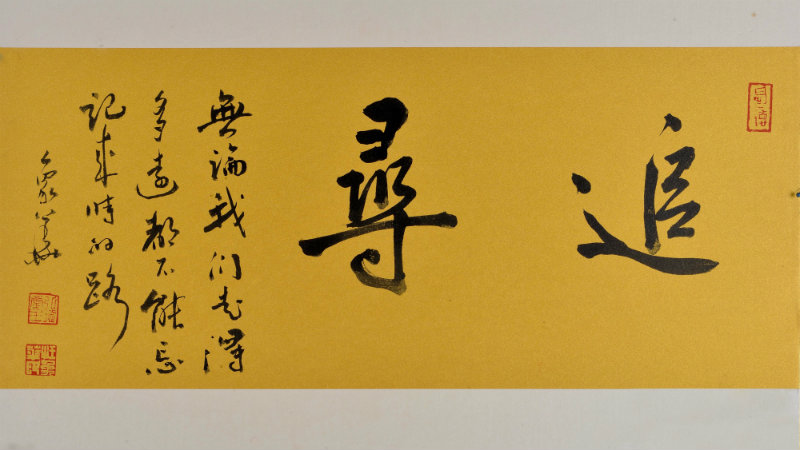 追尋
無論我们走得
多遠都不能忘
記来時的路